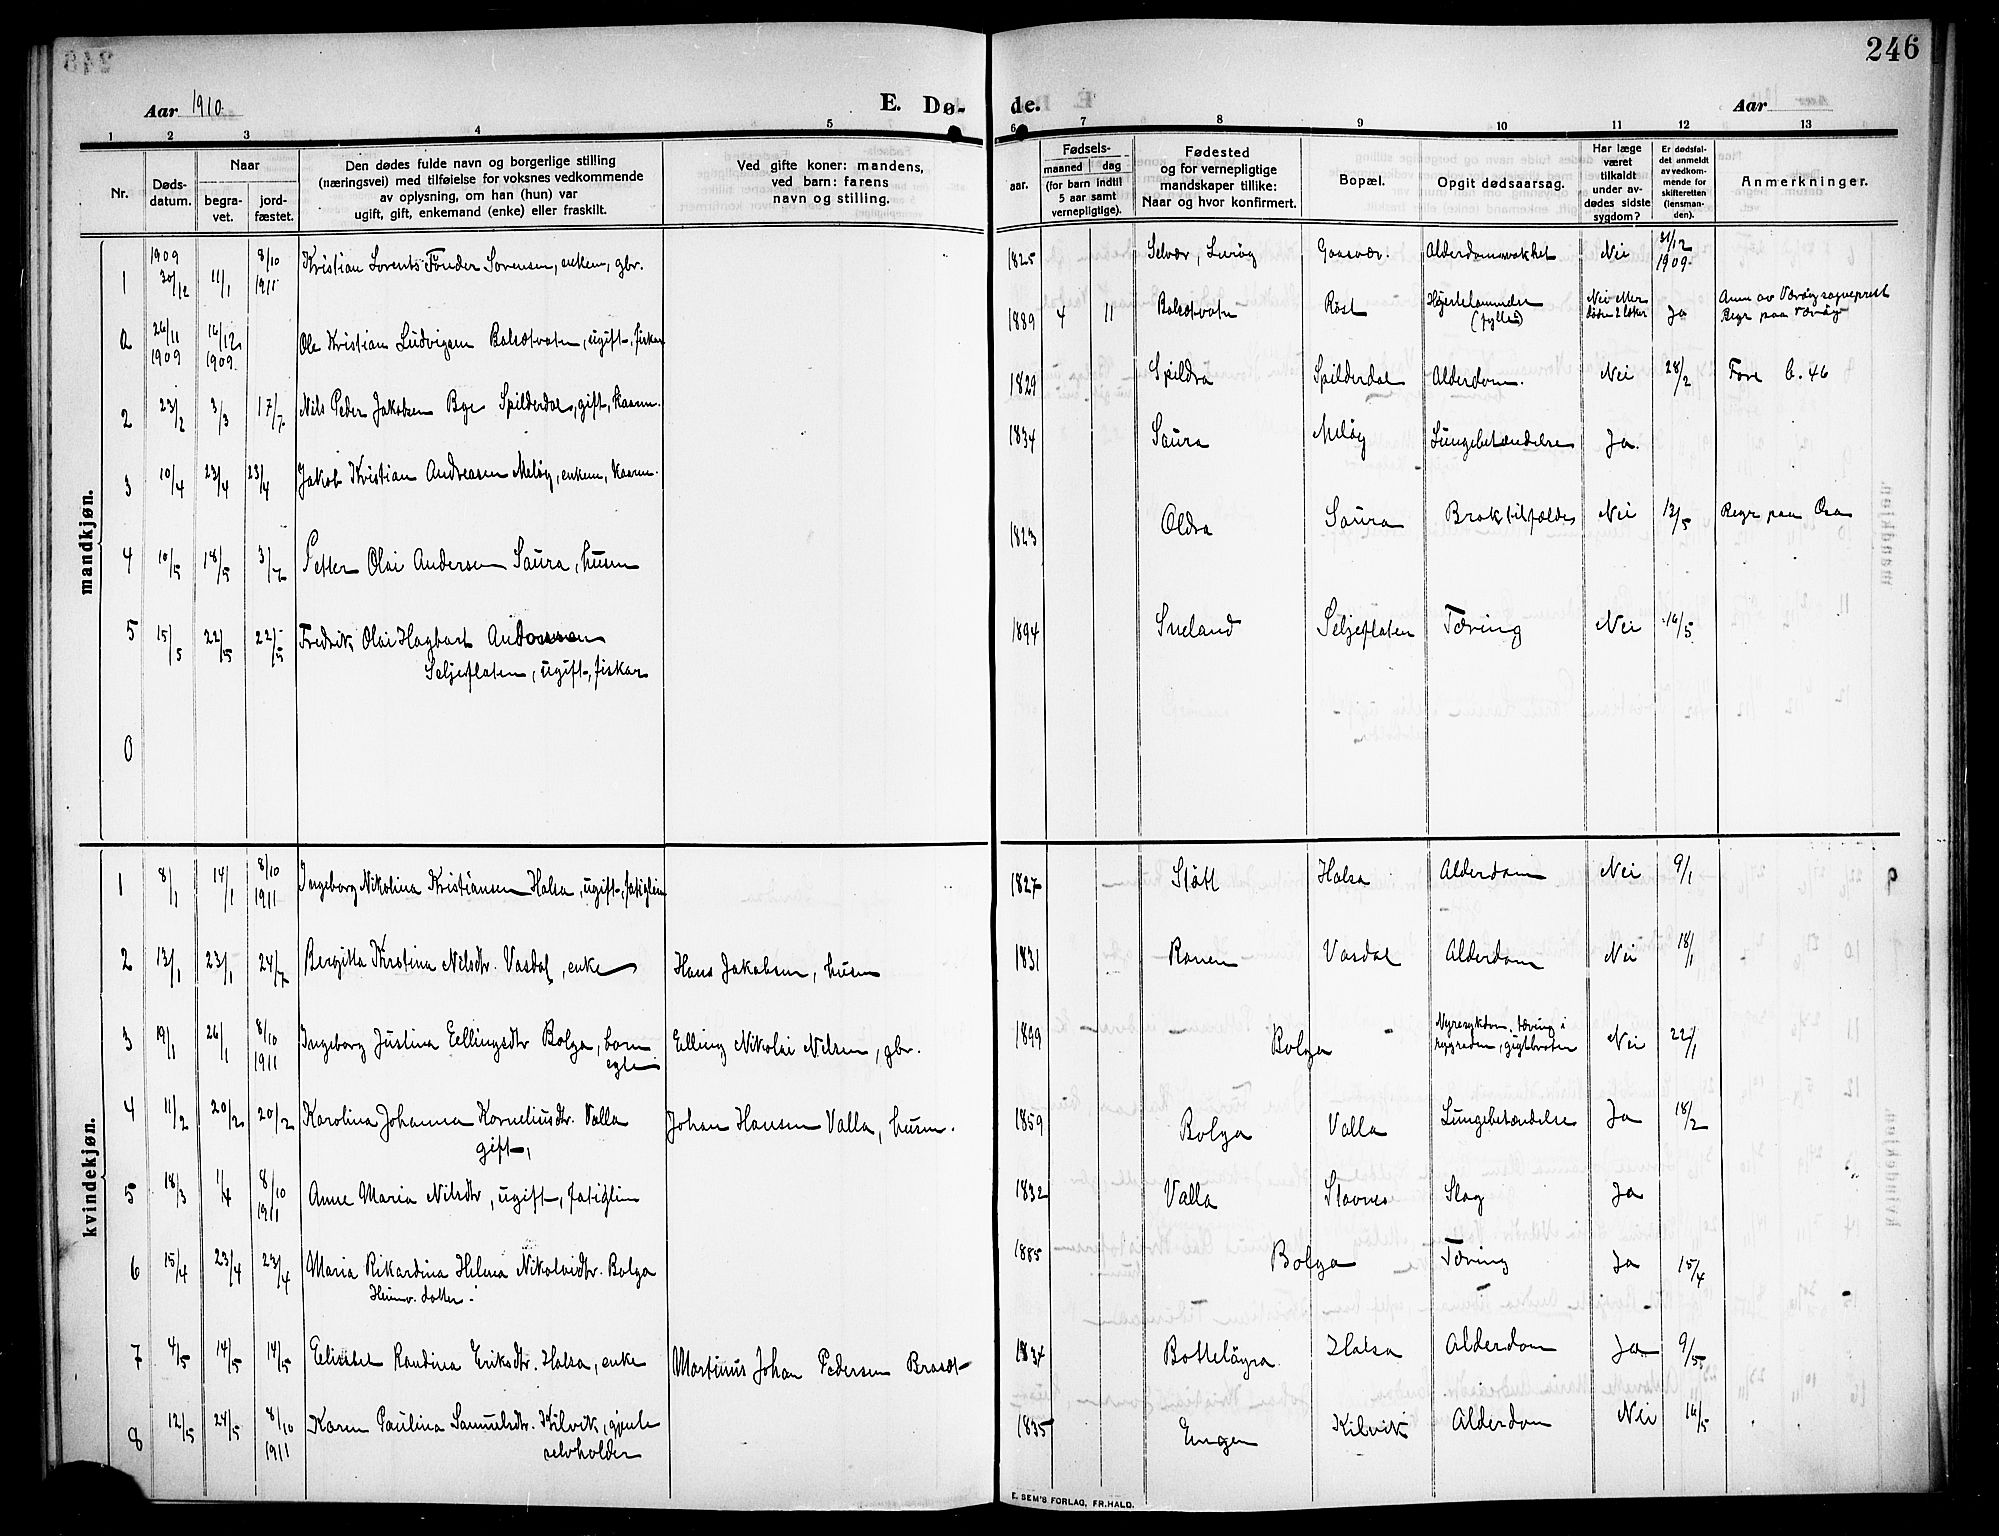 246
Aar 1910.
E. Dø-
de.
Aar
1 2 3 4 5 6 7 8 9 10 11 12 13
Nr.
Døds-
datum.
Naar
begra-
vet.
jord-
fæstet.
Den dødes fulde navn og borgerlige stilling
(næringsvei) med tilføielse for voksnes vedkommende
av oplysning, om han (hun) var
ugift, gift, enkemand (enke) eller fraskilt.
Ved gifte koner: mandens,
ved barn: farens
navn og stilling.
Fødsels-
aar.
maaned
dag
(for barn indtil
5 aar samt
vernepligtige).
Fødested
og for vernepligtige
mandskaper tillike:
Naar og hvor konfirmert.
Bopæl.
Opgit dødsaarsag.
Har læge
været
tilkaldt
under av-
dødes sidste
sygdom?
Er dødsfal-
det anmeldt
av vedkom-
mende for
skifteretten
(lensman-
den).
Anmerkninger.
mandkjøn.
1 1909 30/12 11/1 8/10 1911 Kristian Lorents Fonder Sørensen, enkem, gbr. 1825 Selvær, Lurøy Gaasvær. Alderdomssvakhet Nei 31/12 1909.
2 26/11 1909 16/12 1909. Ole Kristian Ludvigsen Bolsøtvatn, ugift, fisker 1889 4 11 Bolsøtvatn Røst Ja
2 23/2 3/3 17/7 Nils Peder Jakobsen Bye Spilderdal, gift, kaarm. 1829 Spildra Spilderdal Alderdom. Nei 28/2 Føre b. 46
3 10/4 23/4 23/4 Jakob Kristian Andreasen Meløy, enkem, kaarm. 1834 Saura Meløy Lungebetændelse Ja.
4 10/5 18/5 3/7 Petter Olai Andersen Saura, husm 1823 Oldra Saura Broktilfælde Nei 13/5
5 15/5 22/5 22/5 Fredrik Olai Hagbart Andersen
Seljeflaten, ugift, fisker 1894 Sneland Seljeflaten Tæring Nei 16/5
0
kvindekjøn.
1 8/1 14/1 8/10 1911 Ingeborg Nikolina Kristiansen Halsa, ugift, fatiglem 1827 Støtt Halsa Alderdom Nei 9/1
2 13/1 23/1 24/7 Bergitta Kristina Nilsdtr. Vasdal, enke Hans Jakobsen, husm 1831 Ranen Vasdal Alderdom Nei 18/1
3 19/1 26/1 8/10 1911 Ingeborg Justina Ellingsdtr Bolga, barn
egte Elling Nikolai Nilsen, gbr. 1899 Bolga Nyresykdom, tæring i
rygraden, Nei 22/1
4 11/2 20/2 20/2 Karolina Johanna Korneliusdtr. Valla
gift, Johan Hansen Valla, husm. 1859 Bolga Valla Lungebetændelse Ja 18/2
5 18/3 1/4 8/10 1911 Anne Maria Nilsdtr, ugift, fatiglem 1832 Valla Stavnes Slag Ja
6 15/4 23/4 23/4 Maria Rikardina Helma Nikolaidtr. Bolga
Heimv. datter. 1885 Bolga Tæring Ja 15/4
7 4/5 14/5 14/5 Elisabet Randina Eriksdtr. Halsa, enke Martinus Johan Pedersen 1834 Halsa Alderdom Ja 9/5
8 12/5 24/5 8/10 1911 Karen Paulina Samuelsdtr. Kilvik,
selvholder 1835 Engen Kilvik Alderdom Nei 16/5
E. SEM'S FORLAG, FR.HALD.